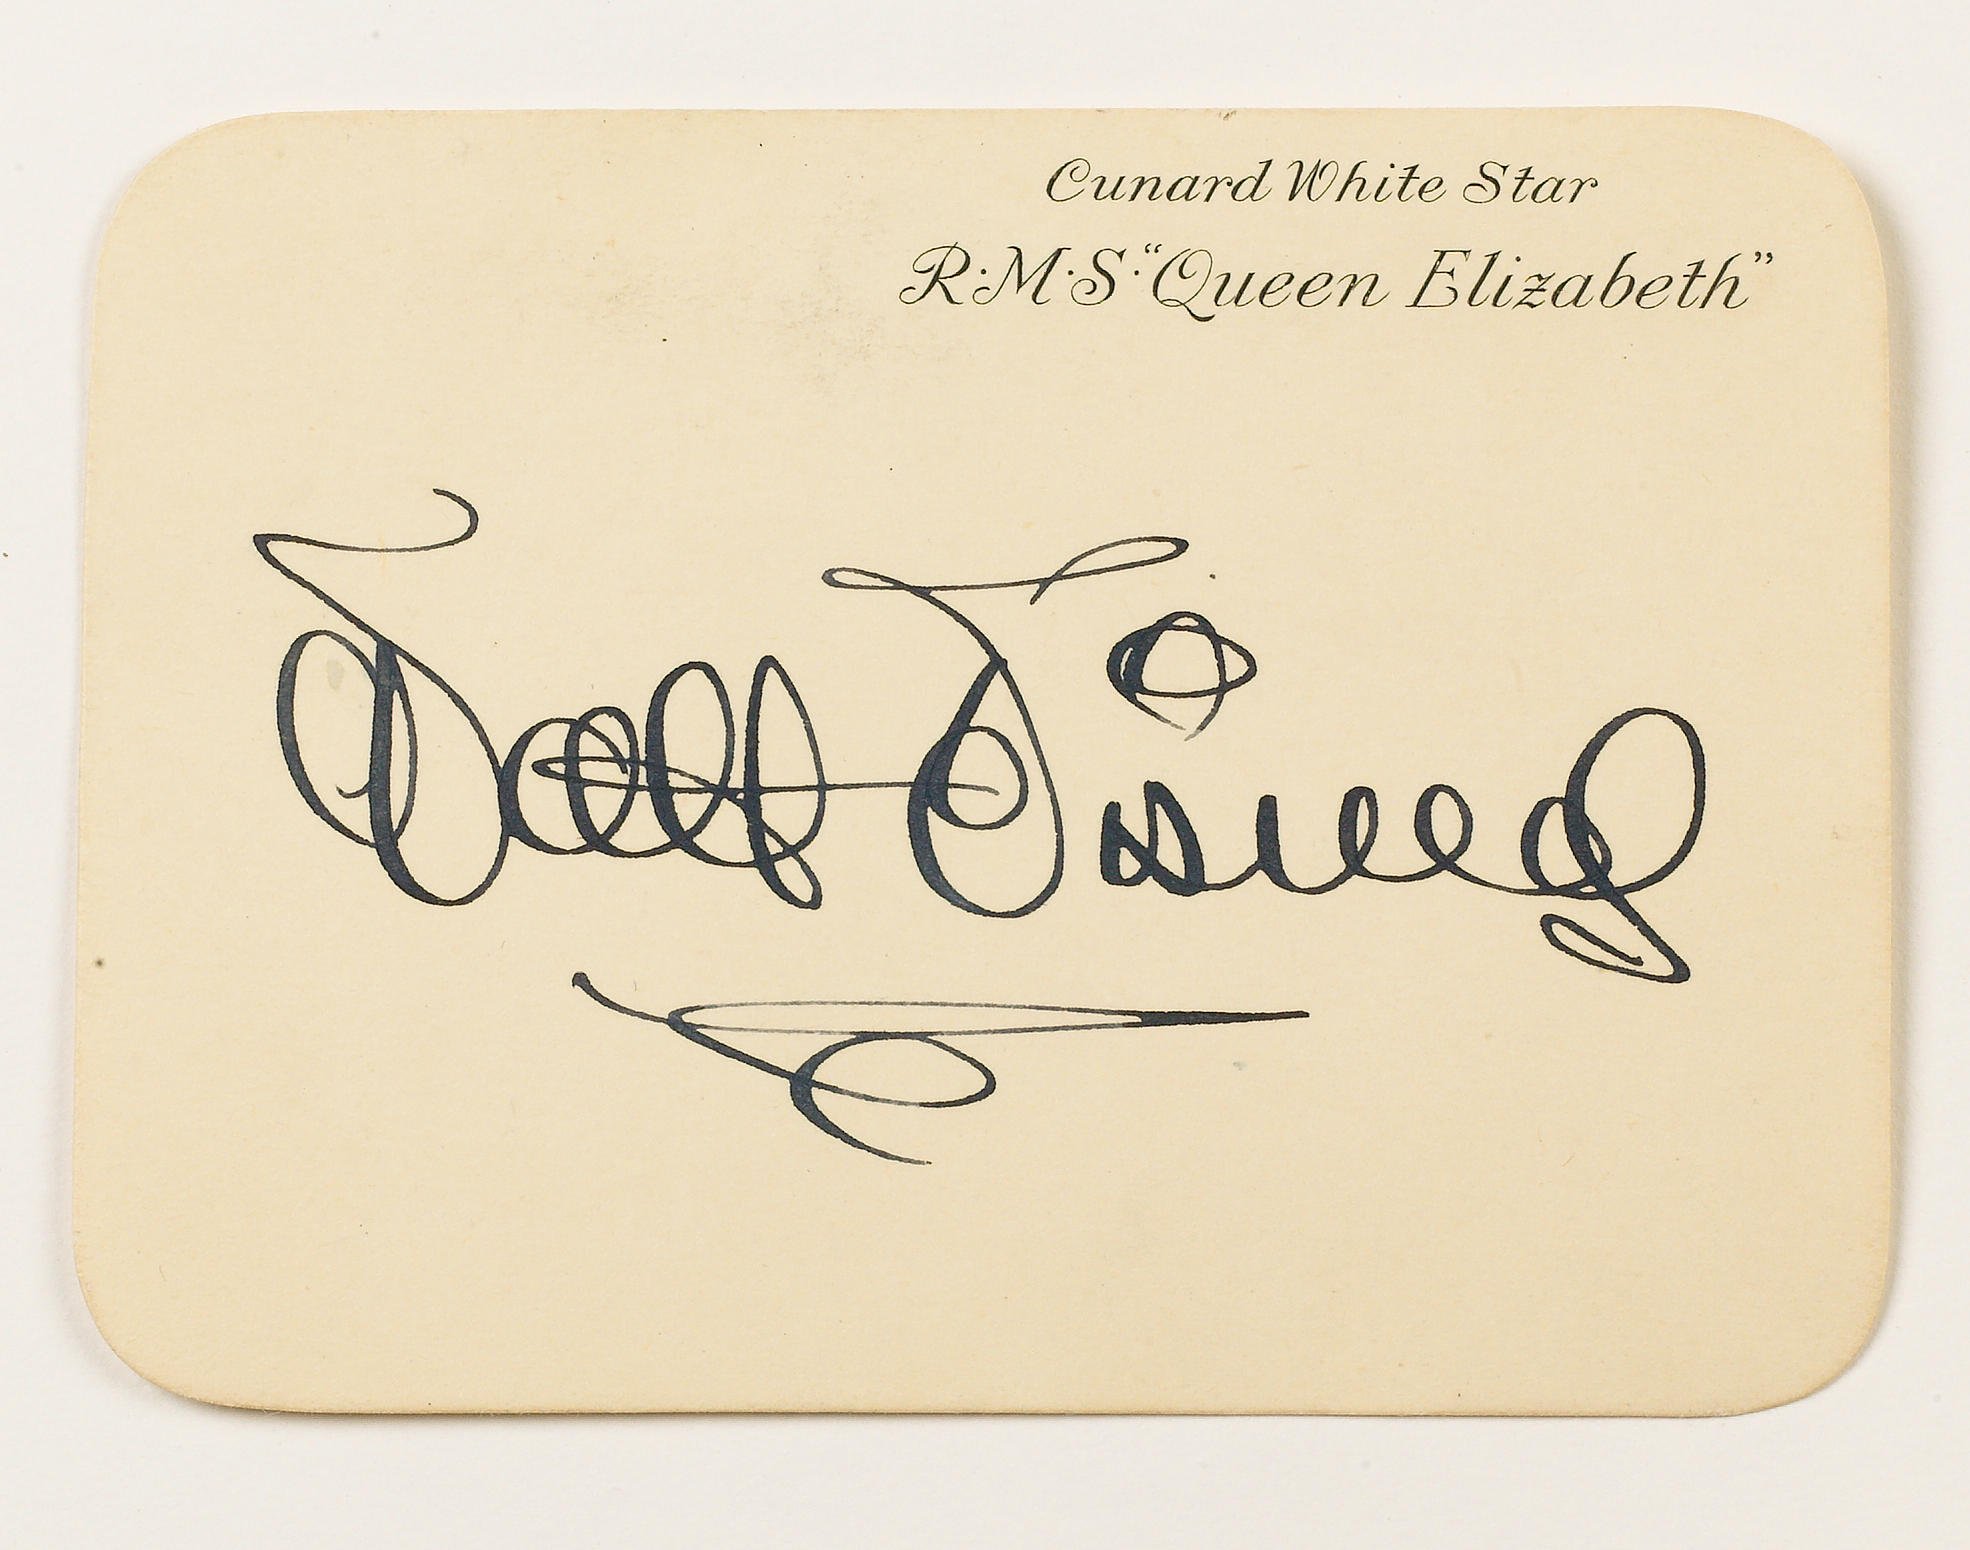 Cunard White Star
R·M·S·“Queen Elizabeth”
Walt Disney